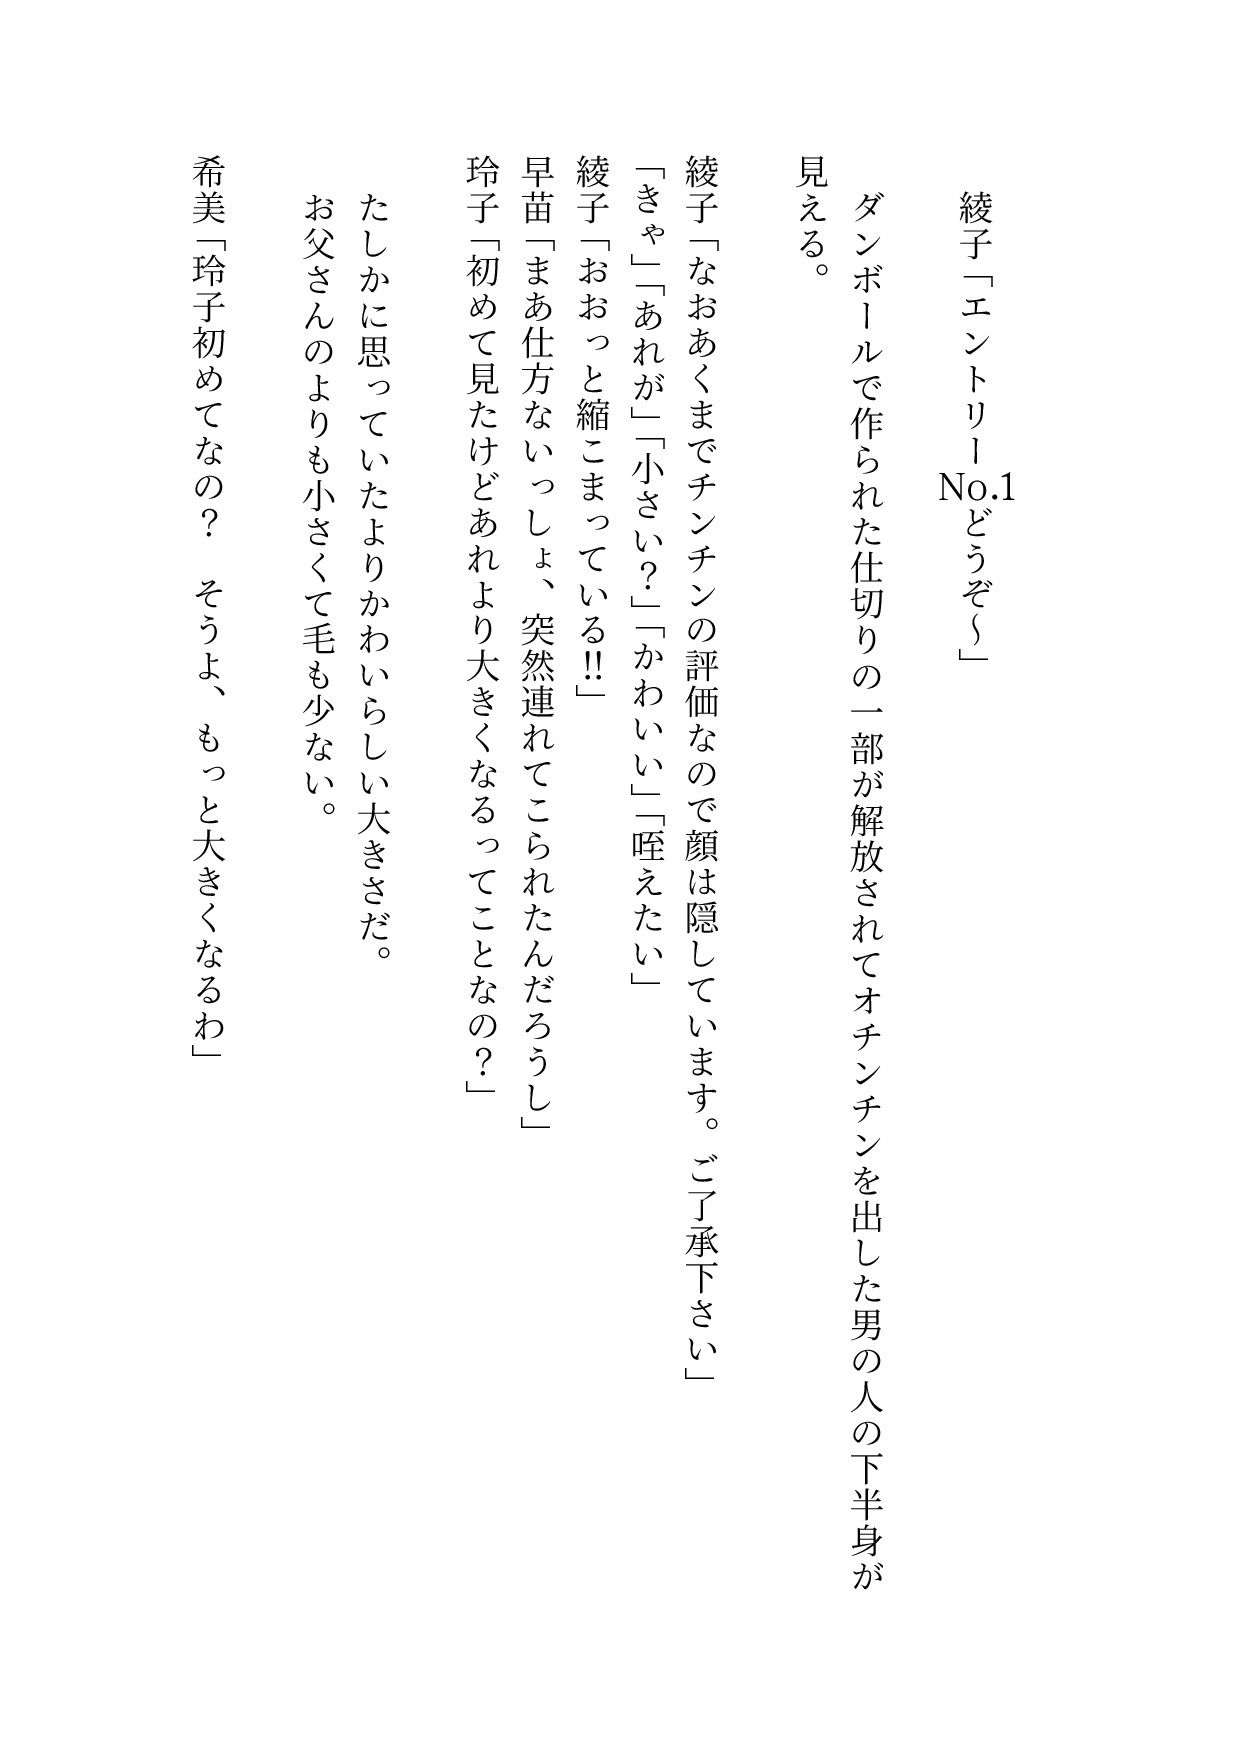 綾子「エントリーNo.1どうぞ～」
ダンボールで作られた仕切りの一部が解放されてオチンチンを出した男の人の下半身が
見える。
綾子「なおあくまでチンチンの評価なので顔は隠しています。ご了承下さい」
「きゃ」「あれが」「小さい？」「かわいい」「咥えたい」
綾子「おおっと縮こまっている!!」
早苗「まあ仕方ないっしょ、突然連れてこられたんだろうし」
玲子「初めて見たけどあれより大きくなるってことなの？」
たしかに思っていたよりかわいらしい大きさだ。
お父さんのよりも小さくて毛も少ない。
希美「玲子初めてなの？　そうよ、もっと大きくなるわ」